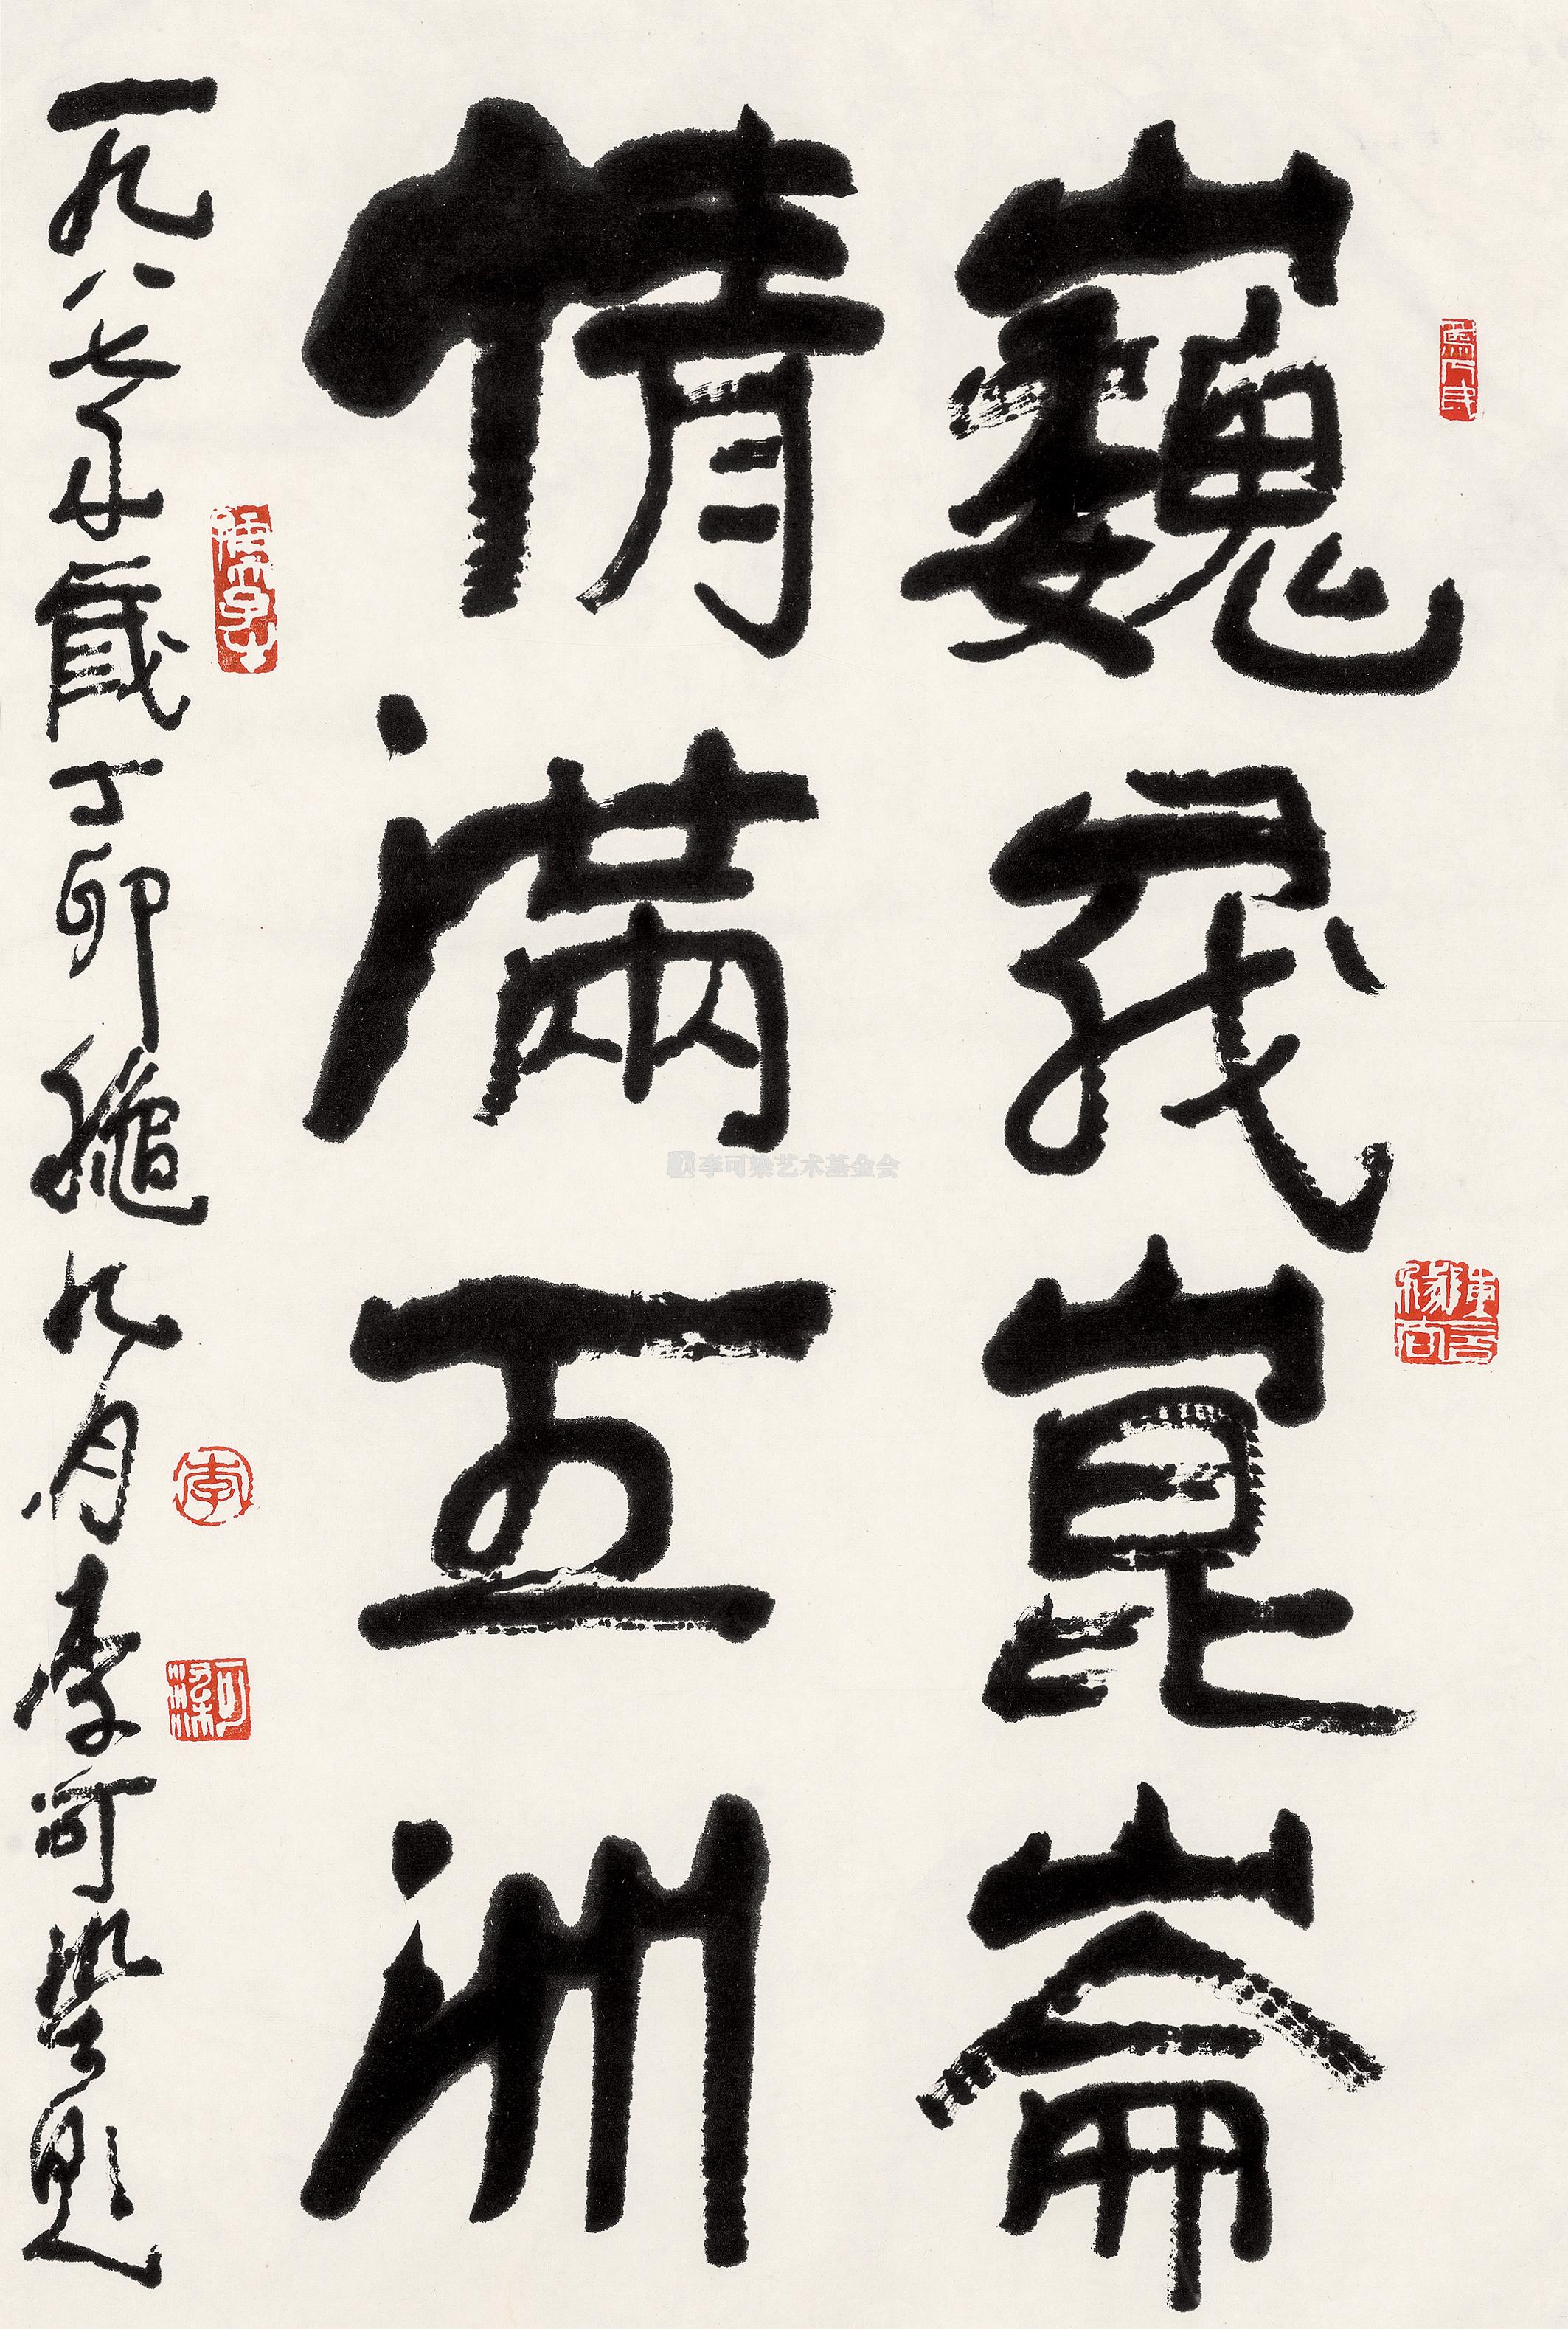 巍峩崑崙
情滿五洲
一九八七年歲丁卯龝九月李可染題
李
可染
李可染艺术基金会